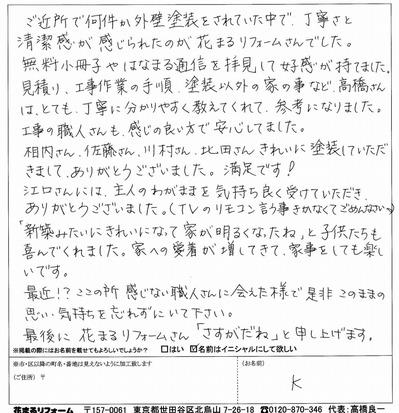 ご近所で何件か外壁塗装をされていた中で、丁寧さと
清潔感が感じられたのが花まるリフォームさんでした。
無料小冊子やはなまる通信を拝見して好感が持てました。
見積り、工事作業の手順、塗装以外の家の事など、高橋さん
は、とても、丁寧に分かりやすく教えてくれて、参考になりました。
工事の職人さんも、感じの良い方で安心してました。
相内さん、佐藤さん、川村さん、北田さんきれいに塗装していただ
きまして、ありがとうございました。満足です!
江口さんには、主人のわがままを気持ち良く受けていただき、
ありがとうございました。(TVのリモコン言う事きかなくてごめんなさい)
「新築みたいにきれいになって家が明るくなったね」と子供たちも
喜んでくれました。家への愛着が増してきて、家事をしても楽し
いです。
最近!?ここの所感じない職人さんに会えた様で是非このままの
思い・気持ちを忘れずにいて下さい。
最後に花まるリフォームさん「さすがだね」と申し上げます。
※掲載の際にはお名前を載せてもよろしいでしょうか? □はい ☑名前はイニシャルにして欲しい
※市・区以降の町名・番地は見えないように加工致します
(ご住所) 〒
(お名前)
K
花まるリフォーム 〒157-0061 東京都世田谷区北烏山7-26-18 ☎0120-870-346 代表:高橋良一